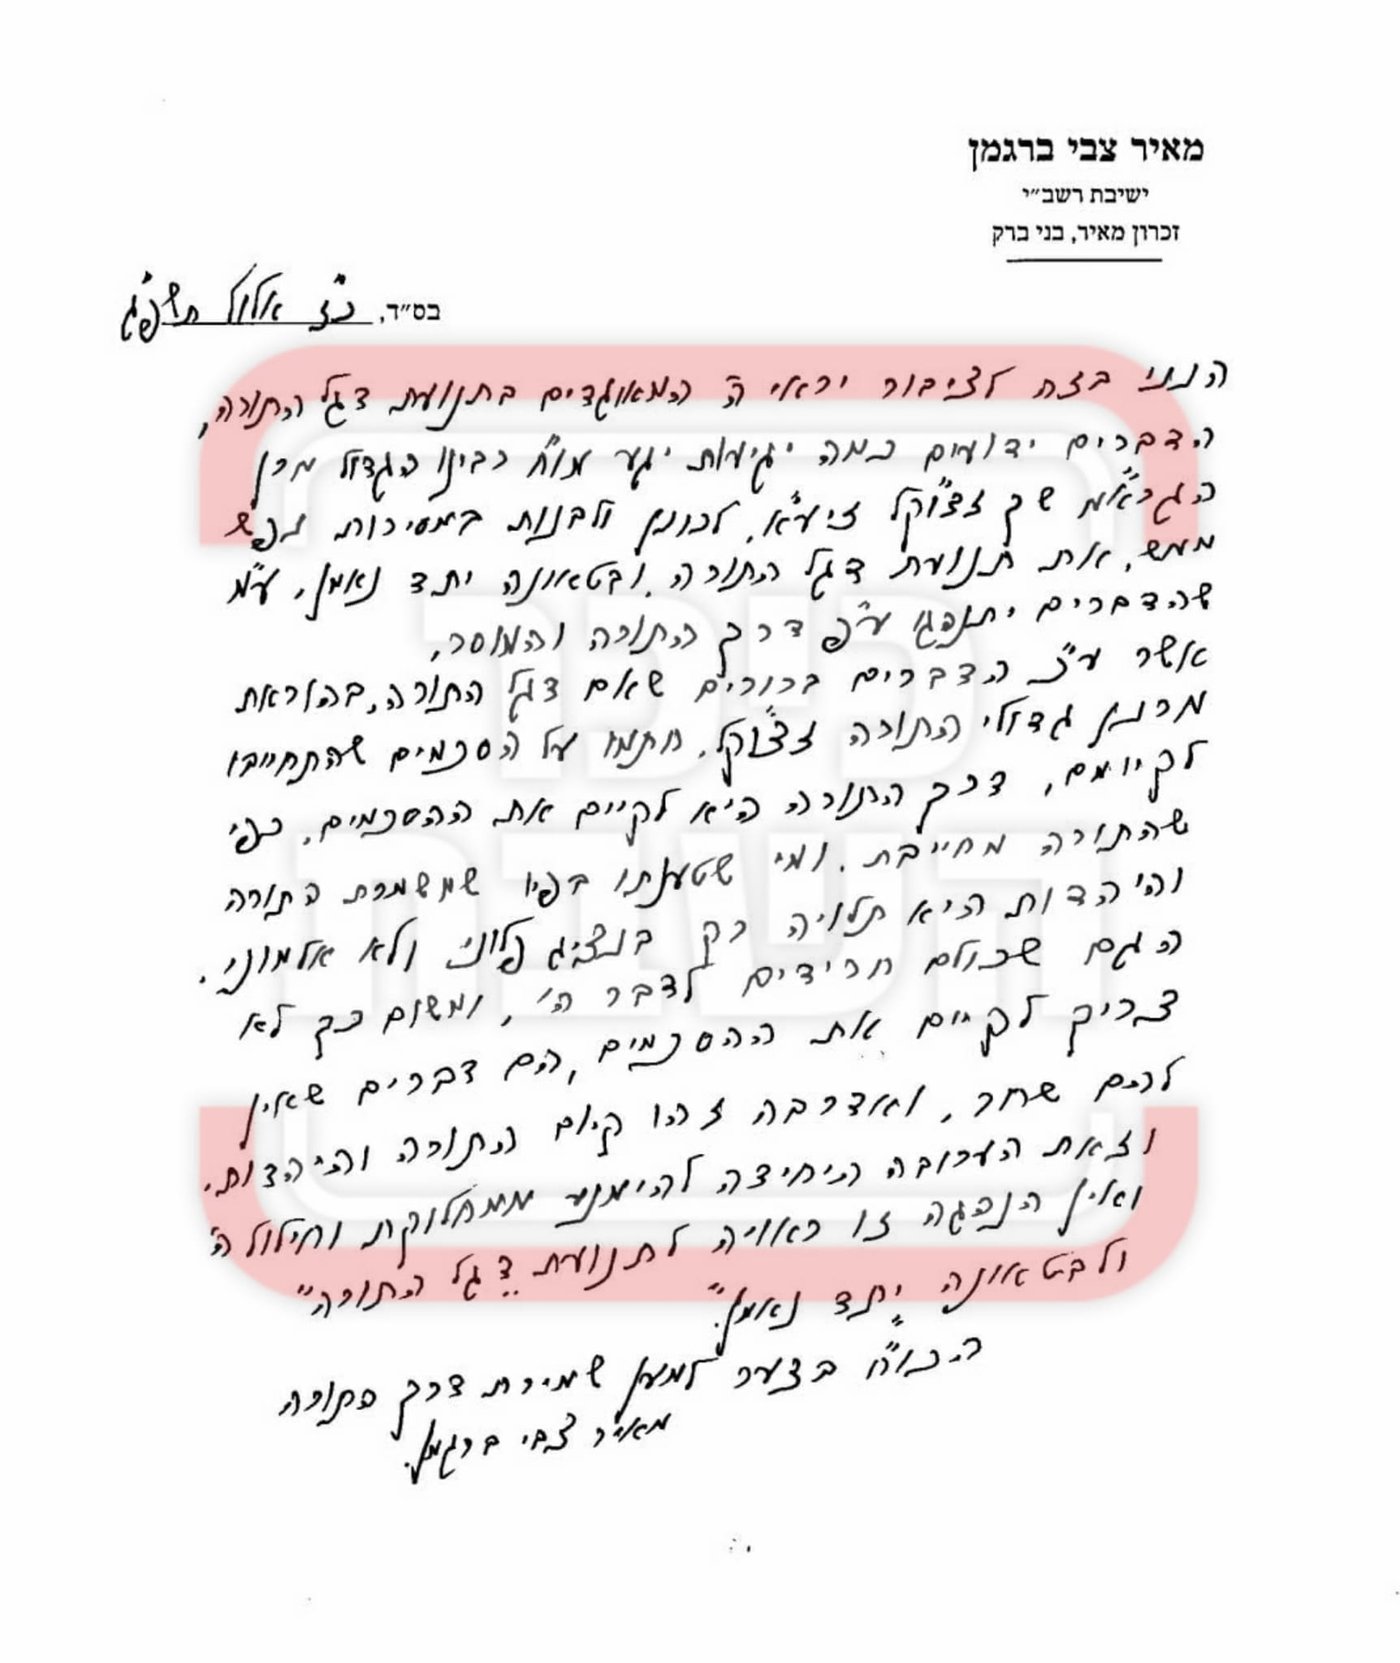 מאיר צבי ברגמן
ישיבת רשב״י
זכרון מאיר, בני ברק
בס״ד, כ״ז אלול תשפ״ג
הנני בזה לציבור יראי ה' המאוגדים בתנועת דגל התורה,
הדברים ידועים כמה יגיעות יגע מו״ח רבינו הגדול מרן
הגרא״מ שך זצוק״ל זיע״א, לכונן ולבנות במסירות נפש
ממש, את תנועת דגל התורה, ובטאונה יתד נאמן, ע״מ
שהדברים יתנהגו ע״פ דרך התורה והמוסר,
אשר ע״כ הדברים ברורים שאם דגל התורה, בהוראת
מרנן גדולי התורה זצוק״ל, חתמו על הסכמים שהתחייבו
לקיומם, דרך התורה היא לקיים את ההסכמים, כפי
שהתורה מחייבת. ומי שטענתו בפיו שמשמרת התורה
והיהדות היא תלויה רק בנציג פלוני ולא אלמוני,
הגם שכולם חרידים לדבר ה', ומשום כך לא
צריך לקיים את ההסכמים, הם דברים שאין
להם שחר, ואדרבה זהו קיום התורה והיהדות,
וזאת הערובה היחידה להימנע ממחלוקת וחילול ה'
ואין הנהגה זו ראויה לתנועת "דגל התורה"
ולבטאונה "יתד נאמן".
הכו״ח בצער למען שמירת דרך התורה
מאיר צבי ברגמן.
כיכר
השבת